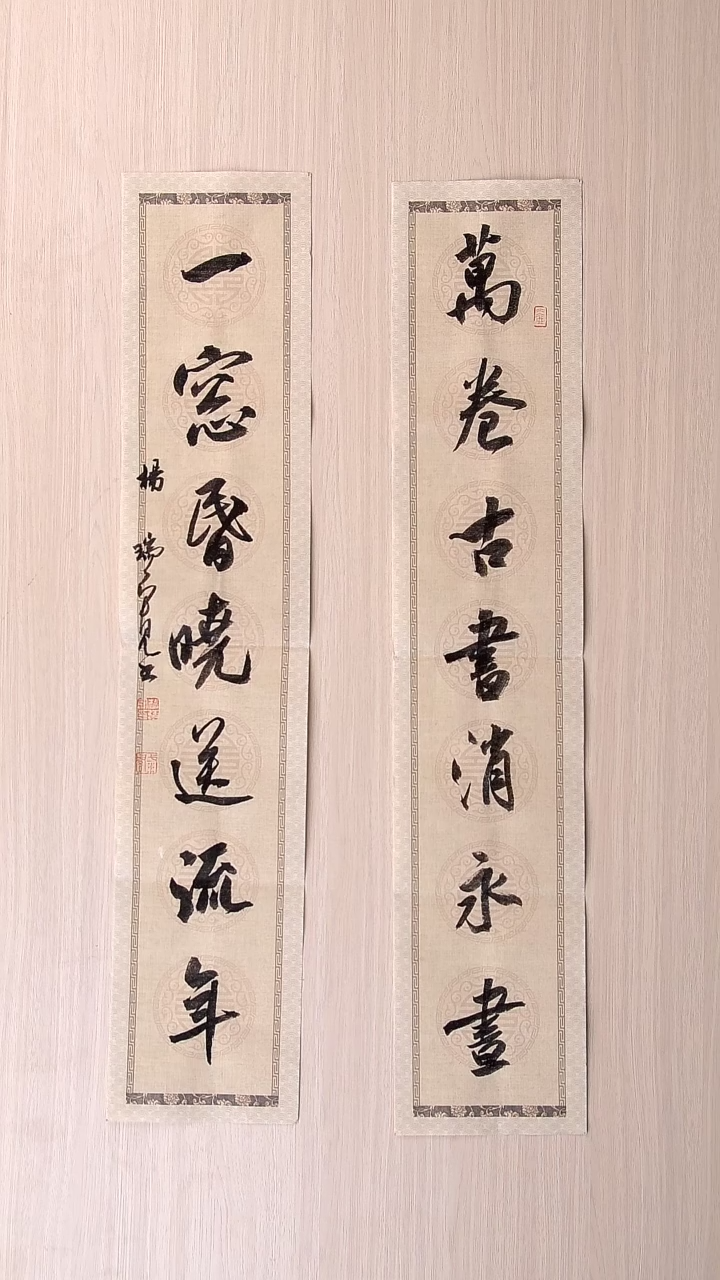 萬卷古書消永晝
一窓昏曉送流年
楊瑞